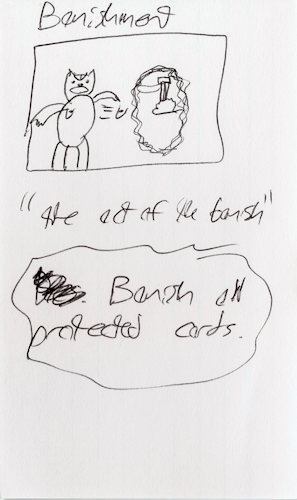 Banishment
"the act of the banish"
Banish all
protected cards.